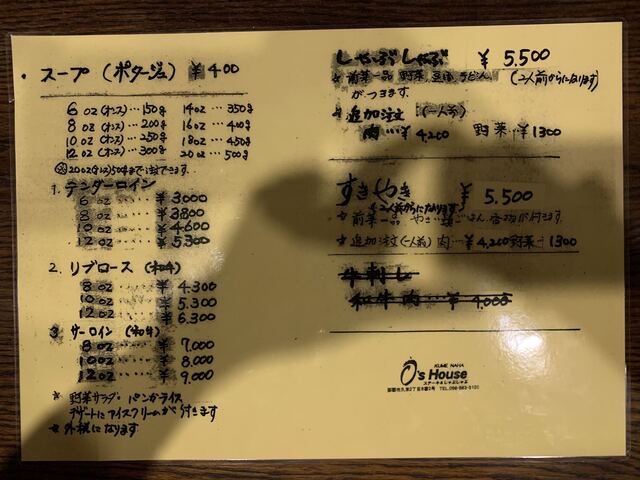 ・スープ(ポタージュ) ¥400
6 oz(オンス)…150g 14oz…350g
8 oz(オンス)…200g 16oz…400g
10 oz(オンス)…250g 18oz…450g
12 oz(オンス)…300g 20oz…500g
1. テンダーロイン
6 oz……¥3,000
8 oz……¥3,800
10 oz……¥4,600
12 oz……¥5,300
2. リブロース(和牛)
8 oz……¥4,300
10 oz……¥5,300
12 oz……¥6,300
3. サーロイン(和牛)
8 oz……¥7,000
10 oz……¥8,000
12 oz……¥9,000
* 野菜サラダ・パンかライス
デザートにアイスクリームが付きます
* 外税になります
しゃぶしゃぶ ¥5,500
* 前菜一品 野菜 豆腐 うどん (2人前からになります)
がつきます
* 追加注文(一人前)
肉…¥4,200 野菜…¥1300
すきやき ¥5,500
(2人前からになります)
* 追加注文(一人前) 肉…¥4,200 野菜…1300
牛刺し
和牛肉…¥4,000
KUME NAHA
O's House
ステーキ&しゃぶしゃぶ